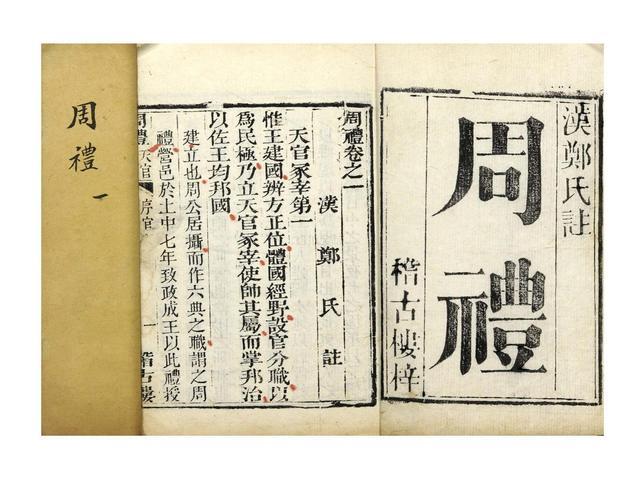 漢鄭氏註
周禮
稽古樓梓
周禮卷之一
漢 鄭 氏 註
天官冢宰第一
惟王建國辨方正位體國經野設官分職以
爲民極乃立天官冢宰使帥其屬而掌邦治
以佐王均邦國
建立也周公居攝而作六典之職謂之周
禮營邑於土中七年致政成王以此禮授
周禮 天官 序官 一 稽古樓
周禮 一